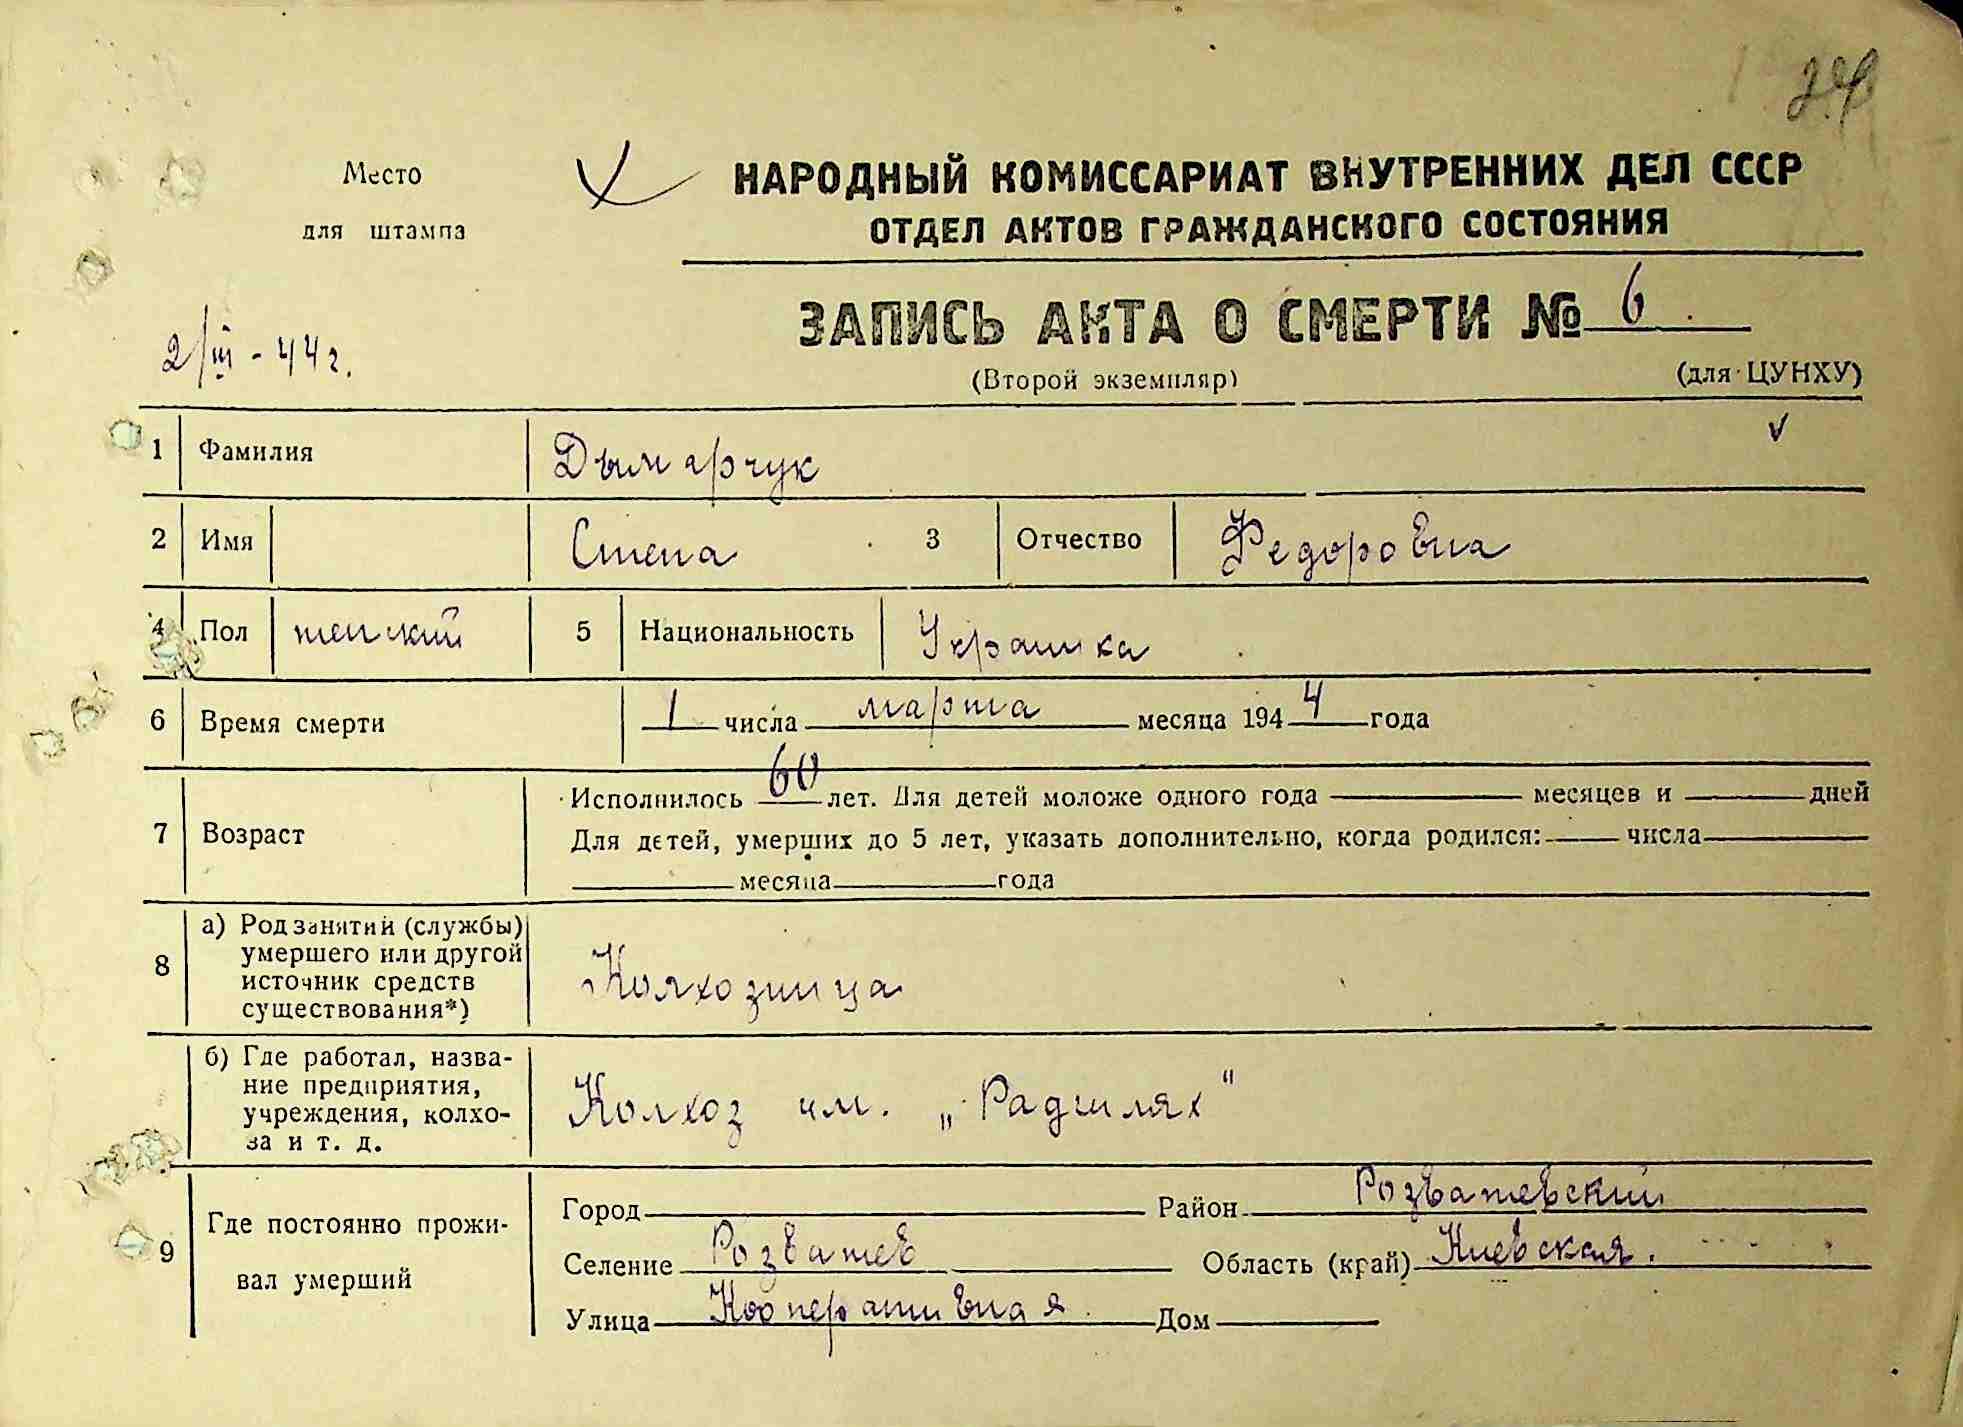 24
Место
для штампа
НАРОДНЫЙ КОМИССАРИАТ ВНУТРЕННИХ ДЕЛ СССР
ОТДЕЛ АКТОВ ГРАЖДАНСКОГО СОСТОЯНИЯ
ЗАПИСЬ АКТА О СМЕРТИ № 6
2/III - 44 г.
(Второй экземпляр) (для ЦУНХУ)
1 Фамилия Дымарчук
2 Имя Степа 3 Отчество Федоровна
4 Пол женский 5 Национальность Украинка
6 Время смерти 1 числа марта месяца 1944 года
7 Возраст Исполнилось 60 лет. Для детей моложе одного года месяцев и дней
Для детей, умерших до 5 лет, указать дополнительно, когда родился: числа
месяца года
8 а) Род занятий (службы) умершего или другой источник средств существования*) Колхозница
б) Где работал, название предприятия, учреждения, колхоза и т. д. Колхоз им. „Радшлях“
9 Где постоянно проживал умерший
Город Район Розважевский
Селение Розважев Область (край) Киевская.
Улица Кооперативная Дом